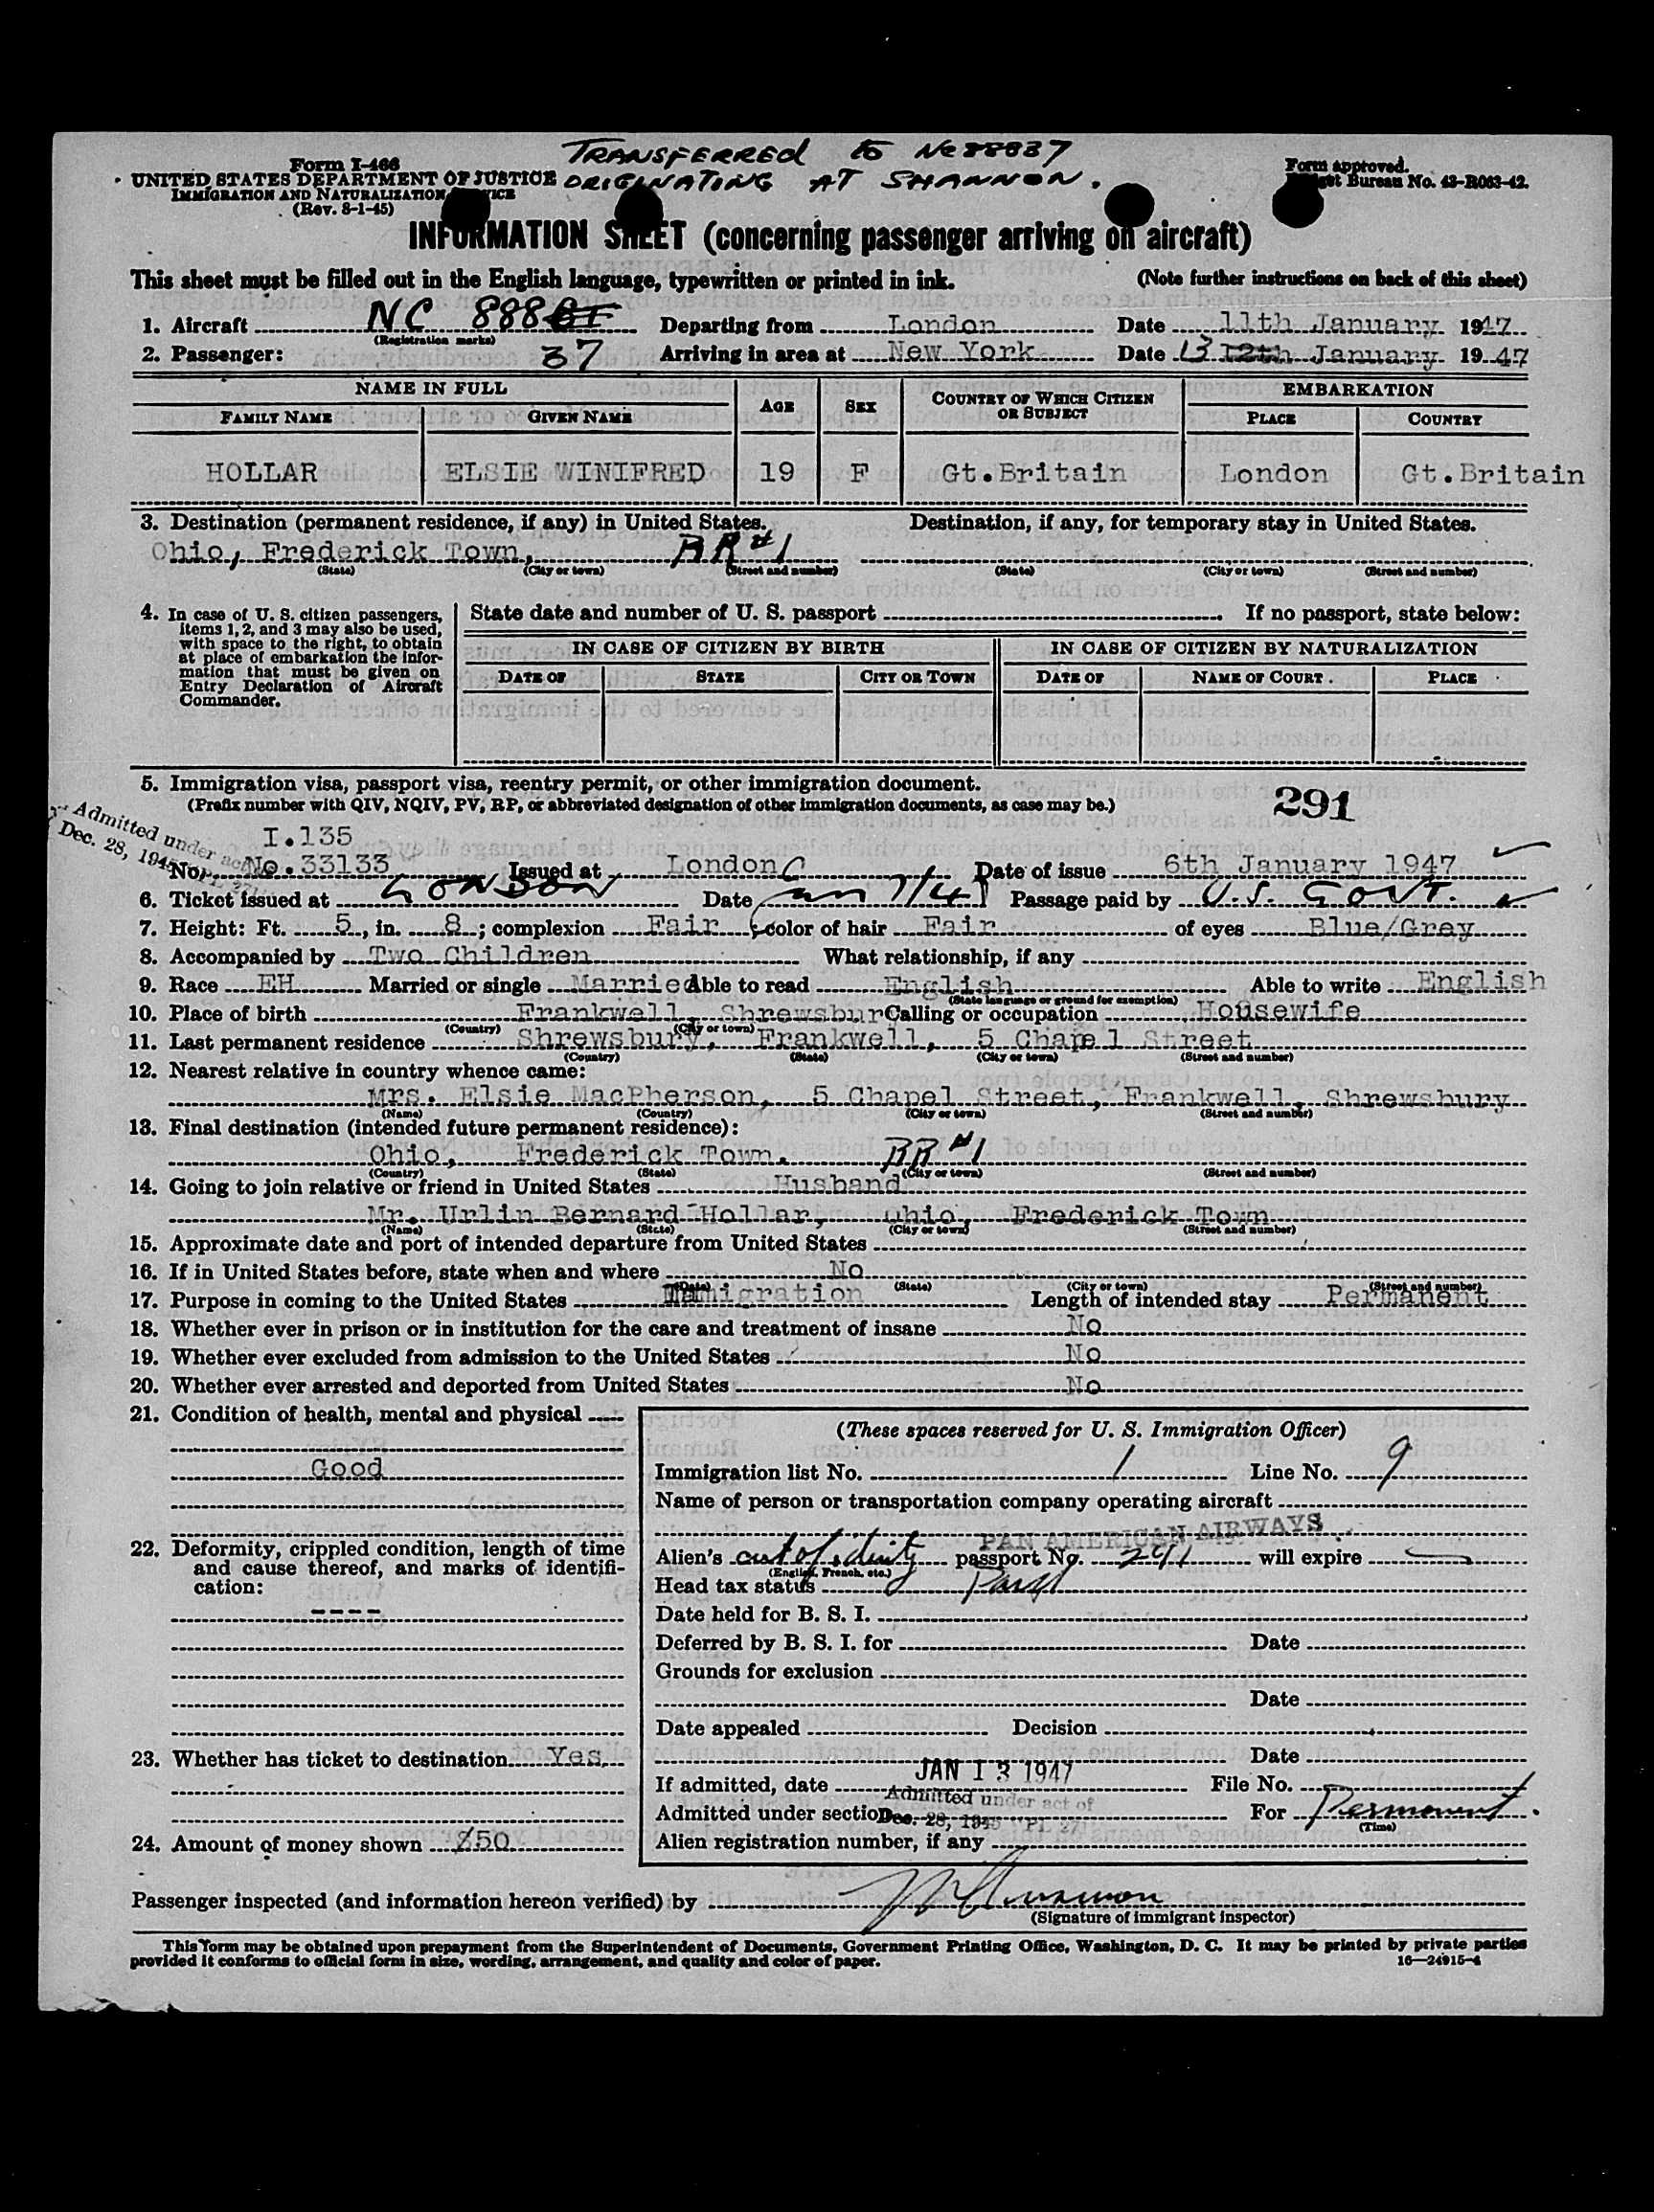 TRANSFERRED to Nc 88837
ORIGINATING AT SHANNON.
Form I-466
UNITED STATES DEPARTMENT OF JUSTICE
IMMIGRATION AND NATURALIZATION
(Rev. 8-1-45)
Form approved.
Bureau No. 43-R063-42.
INFORMATION SHEET (concerning passenger arriving on aircraft)
This sheet must be filled out in the English language, typewritten or printed in ink. (Note further instructions on back of this sheet)
1. Aircraft NC 888 Departing from London Date 11th January 1947
(Registration marks)
37
2. Passenger: Arriving in area at New York Date 13 12th January 1947
NAME IN FULL AGE SEX COUNTRY OF WHICH CITIZEN OR SUBJECT EMBARKATION
FAMILY NAME GIVEN NAME PLACE COUNTRY
HOLLAR ELSIE WINIFRED 19 F Gt.Britain London Gt.Britain
3. Destination (permanent residence, if any) in United States. Destination, if any, for temporary stay in United States.
Ohio, Frederick Town, RR #1
(State) (City or town) (Street and number) (State) (City or town) (Street and number)
4. In case of U. S. citizen passengers, items 1, 2, and 3 may also be used, with space to the right, to obtain at place of embarkation the information that must be given on Entry Declaration of Aircraft Commander.
State date and number of U. S. passport . If no passport, state below:
IN CASE OF CITIZEN BY BIRTH IN CASE OF CITIZEN BY NATURALIZATION
DATE OF STATE CITY OR TOWN DATE OF NAME OF COURT. PLACE
5. Immigration visa, passport visa, reentry permit, or other immigration document.
(Prefix number with QIV, NQIV, PV, RP, or abbreviated designation of other immigration documents, as case may be.)
291
Admitted under act
Dec. 28, 1945
I.135
No. No.33133 Issued at London Date of issue 6th January 1947
6. Ticket issued at LONDON Date Jan 7/47 Passage paid by U.S. GOVT.
7. Height: Ft. 5, in. 8; complexion Fair; color of hair Fair of eyes Blue/Grey
8. Accompanied by Two Children What relationship, if any
9. Race EH Married or single Married Able to read English Able to write English
(State language or ground for exemption)
10. Place of birth Frankwell, Shrewsbur Calling or occupation Housewife
(Country) (City or town)
11. Last permanent residence Shrewsbury, Frankwell, 5 Chapel Street
(Country) (State) (City or town) (Street and number)
12. Nearest relative in country whence came:
Mrs. Elsie MacPherson, 5 Chapel Street, Frankwell, Shrewsbury
(Name) (Country) (City or town) (Street and number)
13. Final destination (intended future permanent residence):
Ohio, Frederick Town. RR #1
(Country) (State) (City or town) (Street and number)
14. Going to join relative or friend in United States Husband
Mr. Urlin Bernard Hollar, Ohio, Frederick Town
(Name) (State) (City or town) (Street and number)
15. Approximate date and port of intended departure from United States
16. If in United States before, state when and where No
(Date) (State) (City or town) (Street and number)
17. Purpose in coming to the United States Immigration Length of intended stay Permanent
18. Whether ever in prison or in institution for the care and treatment of insane No
19. Whether ever excluded from admission to the United States No
20. Whether ever arrested and deported from United States No
21. Condition of health, mental and physical
Good
22. Deformity, crippled condition, length of time and cause thereof, and marks of identification:
----
23. Whether has ticket to destination Yes
24. Amount of money shown $50
(These spaces reserved for U. S. Immigration Officer)
Immigration list No. 1 Line No. 9
Name of person or transportation company operating aircraft
PAN AMERICAN AIRWAYS
Alien's cert of identity passport No. 291 will expire
(English, French, etc.)
Head tax status
Date held for B. S. I.
Deferred by B. S. I. for Date
Grounds for exclusion
Date
Date appealed Decision
Date
If admitted, date JAN 13 1947 File No.
Admitted under act of
Admitted under section Dec. 28, 1945 "PL 27 For Permanent.
(Time)
Alien registration number, if any
Passenger inspected (and information hereon verified) by
(Signature of immigrant inspector)
This form may be obtained upon prepayment from the Superintendent of Documents, Government Printing Office, Washington, D. C. It may be printed by private parties
provided it conforms to official form in size, wording, arrangement, and quality and color of paper. 16—24915-4